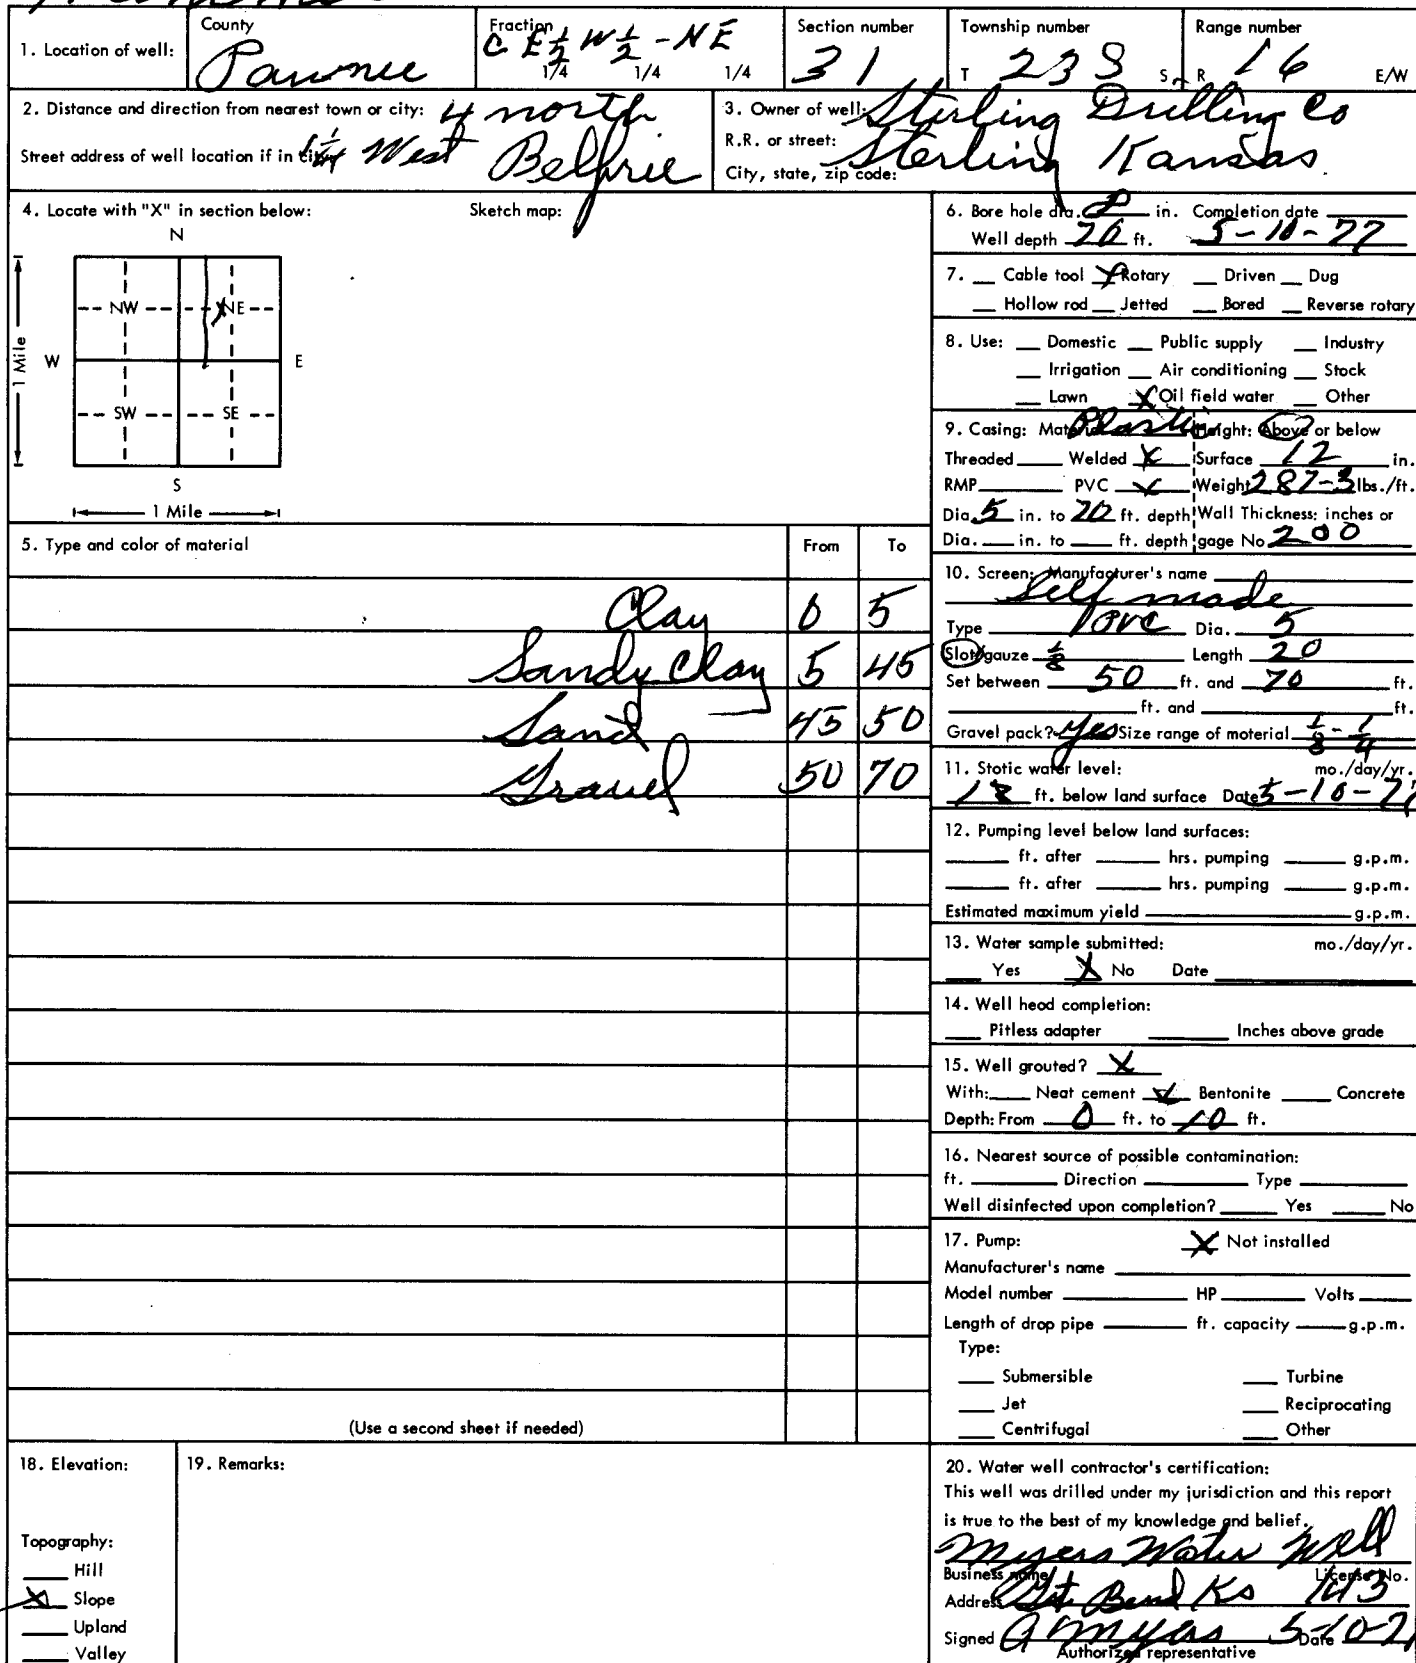 County
Fraction
Section number
Township number
Range number
1. Location of well:
Pawnee
C E½ W½ - NE
1/4 1/4 1/4
31
T 23 S S.
R 16 E/W
2. Distance and direction from nearest town or city: 4 north
Street address of well location if in city: West Belprie
3. Owner of well: Sterling Drilling Co
R.R. or street:
City, state, zip code: Sterling Kansas
4. Locate with "X" in section below:
Sketch map:
N
NW X NE
W E
SW SE
S
1 Mile
1 Mile
5. Type and color of material From To
Clay 0 5
Sandy Clay 5 45
Sand 45 50
Gravel 50 70
(Use a second sheet if needed)
6. Bore hole dia. 8 in. Completion date
Well depth 70 ft. 5-10-77
7. Cable tool X Rotary Driven Dug
Hollow rod Jetted Bored Reverse rotary
8. Use: Domestic Public supply Industry
Irrigation Air conditioning Stock
Lawn X Oil field water Other
9. Casing: Material Plastic Height: Above or below
Threaded Welded X Surface 12 in.
RMP PVC X Weight 287-3 lbs./ft.
Dia. 5 in. to 70 ft. depth Wall Thickness: inches or
Dia. in. to ft. depth gage No 200
10. Screen: Manufacturer's name
Self made
Type PVC Dia. 5
Slot/gauze 1/8 Length 20
Set between 50 ft. and 70 ft.
ft. and ft.
Gravel pack? Yes Size range of material 1/8 - 1/4
11. Stotic water level: mo./day/yr.
18 ft. below land surface Date 5-10-77
12. Pumping level below land surfaces:
ft. after hrs. pumping g.p.m.
ft. after hrs. pumping g.p.m.
Estimated maximum yield g.p.m.
13. Water sample submitted: mo./day/yr.
Yes X No Date
14. Well head completion:
Pitless adapter Inches above grade
15. Well grouted? X
With: Neat cement X Bentonite Concrete
Depth: From 0 ft. to 10 ft.
16. Nearest source of possible contamination:
ft. Direction Type
Well disinfected upon completion? Yes No
17. Pump: X Not installed
Manufacturer's name
Model number HP Volts
Length of drop pipe ft. capacity g.p.m.
Type:
Submersible Turbine
Jet Reciprocating
Centrifugal Other
18. Elevation:
Topography:
Hill
X Slope
Upland
Valley
19. Remarks:
20. Water well contractor's certification:
This well was drilled under my jurisdiction and this report
is true to the best of my knowledge and belief.
Myers Water Well
Business name License No.
Address Gt. Bend Ks 143
Signed A Myers Date 5-10-7
Authorized representative